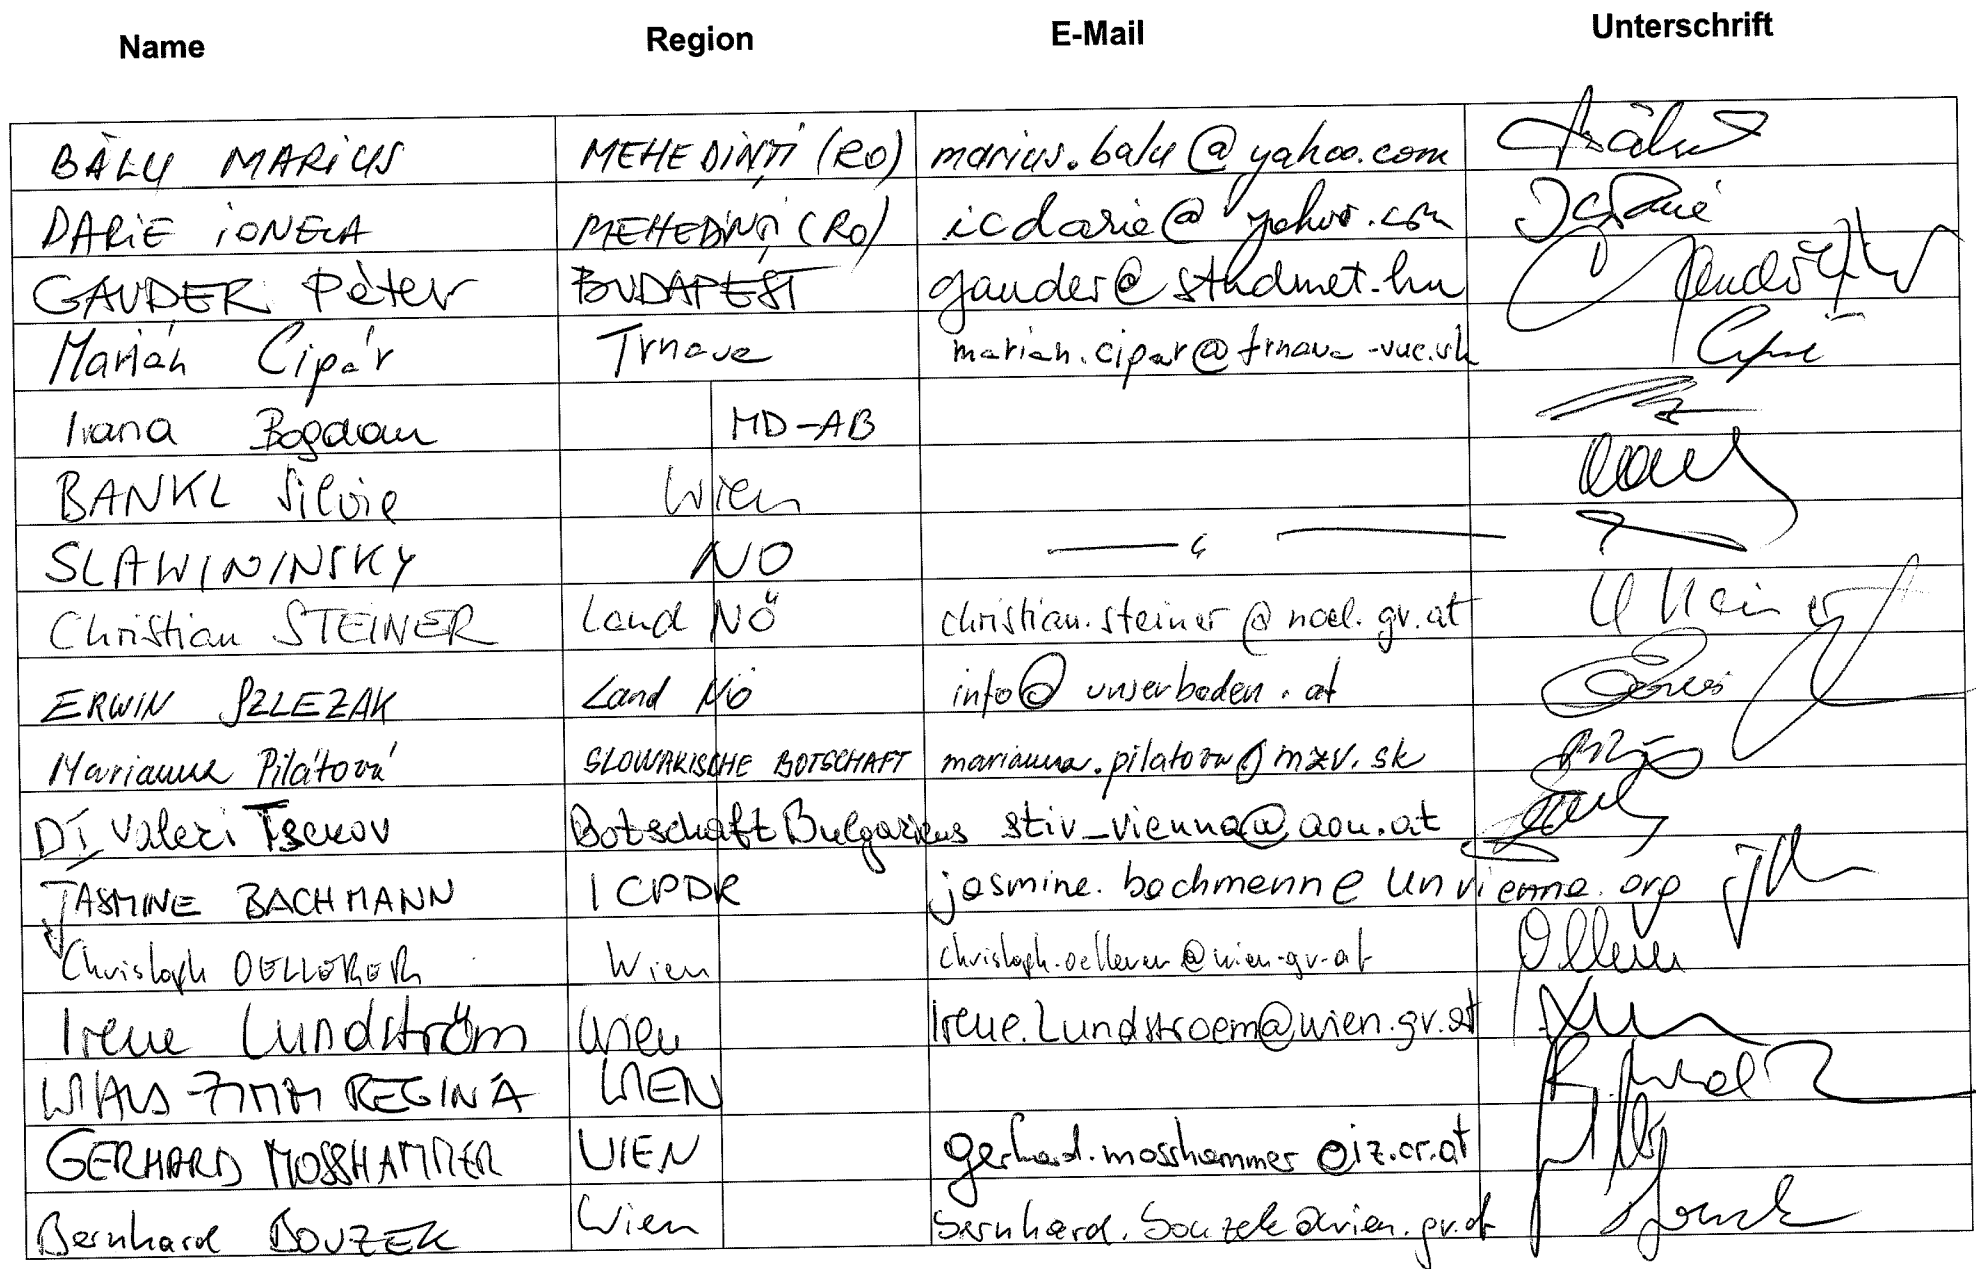 Name Region E-Mail Unterschrift
BĂLU MARIUS MEHEDINȚI (RO) marius.balu@yahoo.com
DARIE IONELA MEHEDINȚI (RO) icdarie@yahoo.com
GAUDER Péter BUDAPEST gauder@studmet.hu
Marián Cipár Trnava marian.cipar@trnava-vuc.sk
Ivana Bogdan MD-AB
BANKL Silvie Wien
SLAWININSKY NÖ
Christian STEINER Land NÖ christian.steiner@noel.gv.at
ERWIN SZLEZAK Land NÖ info@unserboden.at
Marianna Pilátová SLOWAKISCHE BOTSCHAFT marianna.pilatova@mzv.sk
DI Valeri Tsekov Botschaft Bulgariens stiv_vienna@aon.at
JASMINE BACHMANN ICPDR jasmine.bachmann@unvienna.org
Christoph OELLERER Wien christoph.oellerer@wien.gv.at
Irene Lundström Wien Irene.Lundstroem@wien.gv.at
REGINA WIEN
GERHARD MOSSHAMMER WIEN gerhard.mosshammer@iz.or.at
Bernhard BOUZEK Wien bernhard.bouzek@wien.gv.at